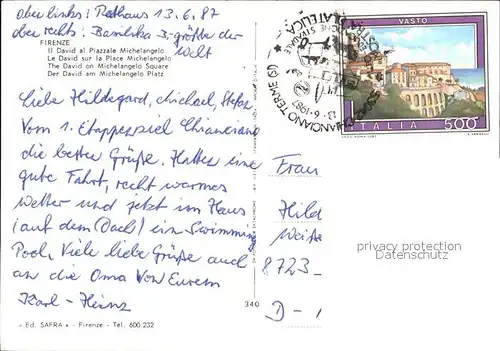 oben links: Rathaus 13.6.87
oben rechts: Basilika 3. größte der Welt
FIRENZE
Il David al Piazzale Michelangelo
Le David sur la Place Michelangelo
The David on Michelangelo Square
Der David am Michelangelo Platz
Liebe Hildegard, Michael, Stefan
Vom 1. Etappenziel Chianciano
die besten Grüße. Hatten eine
gute Fahrt, recht warmes
Wetter und jetzt im Haus
(auf dem Dach) ein Swimming
Pool. Viele liebe Grüße auch
an die Oma von Eurem
Karl-Heinz
« Ed. SAFRA » - Firenze - Tel. 600.232
340
CHIANCIANO TERME (SI)
13.6.1987
VASTO
ITALIA 500
Frau
Hild
Weiße
8723-
D-1
privacy protection
Datenschutz